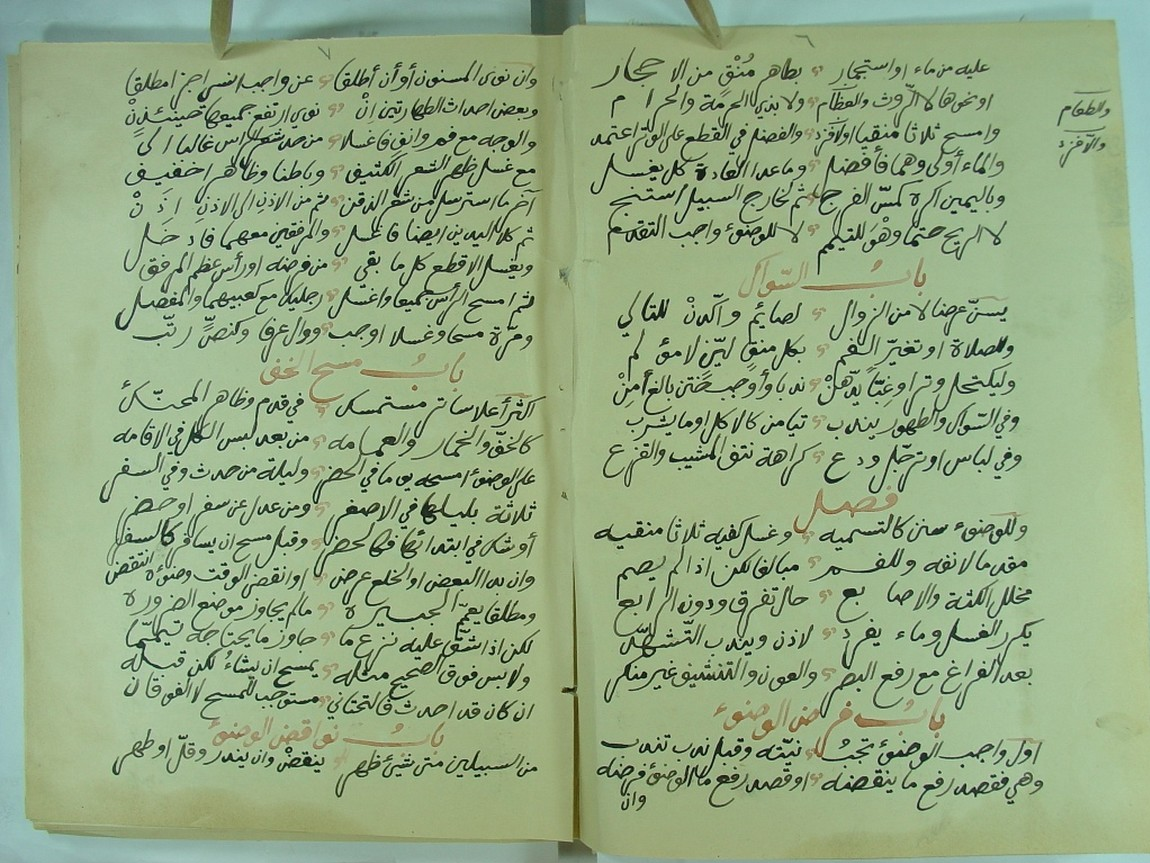 ٦
عليه من ماء او استجمار بطاهر مُنْقٍ من الاحجار
او نحوها لا الروث والعظام ولا بذي الحرمة والحرام
وامسح ثلاثا منقيا اولا فزد والفضل في القطع على الوتر اعتمد
والماء أولى وهما فأفضل وما عدا العادة كل يغسل
وباليمين اكره كمسّ الفرج ثم لخارج السبيل استنج
لا الريح حتما وهو للتيمم لا للوضوء واجب التقدم
والطعام
والا فزد
بابُ السّواك
يسنّ عرضا لا من الزوال لصايم وأكدنْ للتالي
وللصلاة او تغيّر الفم بكل منقٍ ليّن لا مؤلم
وليكتحل وترا وغِبّاً يدّهنْ ندبا وأوجب ختن بالغ أمِنْ
وفي السّواك والطهور يندب تيامن كالاكل او ما يشرب
وفي لباس او ترجّل ودع كراهة نتف المشيب والقزع
فصل
وللوضوء سنن كالتسميه وغسل كفيه ثلاثا منقيه
مقدما لانفه وللفم مبالغا لكن اذا لم يصم
مخلل الكثة والاصابع حال تفرق ودون الرابع
يكرر الغسل وماء يفرد لاذن ويندب التّشهّد
بعد الفراغ مع رفع البصر والعون والتنشيف غير منكر
بابُ فرض الوضوء
اول واجب الوضوء تجبُ نيّته وقبل ندب تندب
وهي فقصد رفع ما ينقضه او قصد رفع ما الوضوء فرضه
وان
٧
وان نوى المسنون أو أن أطلقا عن واجب انسى اجز امطلقا
وبعض احداث الطهارتين انْ نوى ارتفع جميعها حينئذنْ
والوجه مع فم وانف فاغسلا من حد شعر الراس غالبا الى
مع غسل ظهر الشعر الكثيف وباطنا وظاهر الخفيف
آخر ما استرسل من شعر الذقن ثم من الاذن الى الاذن اذَنْ
ثم كلا اليدين ايضا فاغسل والمرفقين معهما فادخل
ويغسل الاقطع كل ما بقي من فرضه او رأس عظم المرفق
ثم امسح الرأس جميعا واغسل رجليك مع كعبيهما والمفصل
ومرّة مسحا وغسلا اوجب ووال عرفا وكنصٍّ رتّب
بابُ مسح الخف
اكثر أعلا ساتر مستمسك في قدم وظاهر المحنّك
كالخفّ والخمار والعمامه من بعد لبس الكل في الاقامه
على الوضوء امسحه يوما في الحضر وليلة من حدث وفي السفر
ثلاثة بليلها في الاصغر ومن عدل عن سفر او حضر
أو شك في ابتدائها فكالحضر وقبل مسح ان يسافر كالسفر
وان بدا البعض او الخلع عرض او انقضى الوقت وضوءه انتقض
ومطلقا يعمّ الجبيرة مالم يجاوز موضع الضرورة
لكن اذا شقّ عليه نزع ما جاوز ما يحتاجه تيمّما
ولابس فوق الصحيح مثله يمسح ان يشاءُ لكن قبله
ان كان قد احدث فالتحتاني مستوجب للمسح لا الفوقاني
بابُ نواقض الوضوء
من السبيلين متى شيئ ظهر ينقضْ وان يندر وقلّ او طهر